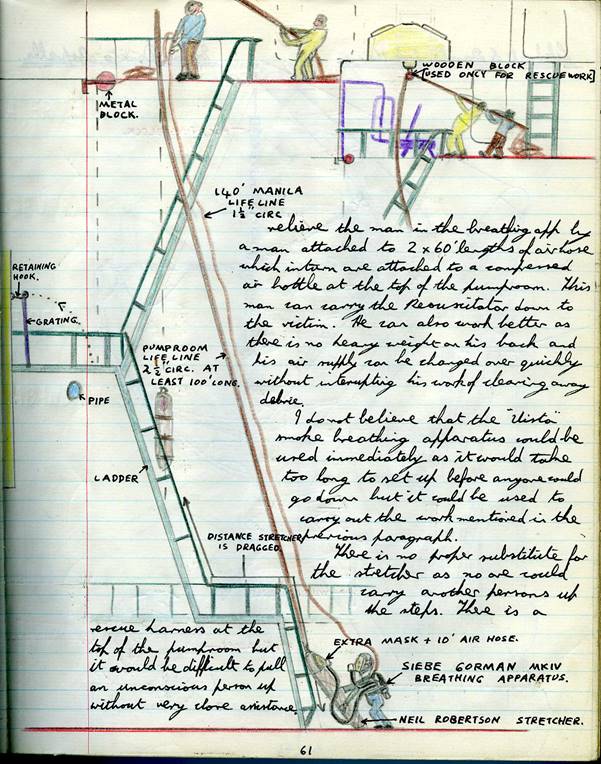 WOODEN BLOCK
[USED ONLY FOR RESCUEWORK]
METAL
BLOCK.
140' MANILA
LIFE LINE
1½" CIRC
relieve the man in the breathing app by
a man attached to 2 x 60' lengths of airhose
which inturn are attached to a compressed
air bottle at the top of the pumproom. This
man can carry the Resusitator down to
the victim. He can also work better as
there is no heavy weight on his back and
his air supply can be changed over quickly
without interupting his work of clearing away
debrie.
RETAINING
HOOK.
GRATING.
PUMPROOM
LIFE LINE
2½" CIRC. AT
LEAST 100' LONG.
PIPE
LADDER
I do not believe that the "Vista"
smoke breathing apparatus could be
used immediately as it would take
too long to set up before anyone could
go down but it could be used to
carry out the work mentioned in the
previous paragraph.
DISTANCE STRETCHER
IS DRAGGED
There is no proper substitute for
the stretcher as no one could
carry another persons up
the steps. There is a
rescue harness at the
top of the pumproom but
it would be difficult to pull
an unconscious person up
without very close assistance.
EXTRA MASK + 10' AIR HOSE.
SIEBE GORMAN MKIV
BREATHING APPARATUS.
NEIL ROBERTSON STRETCHER.
61